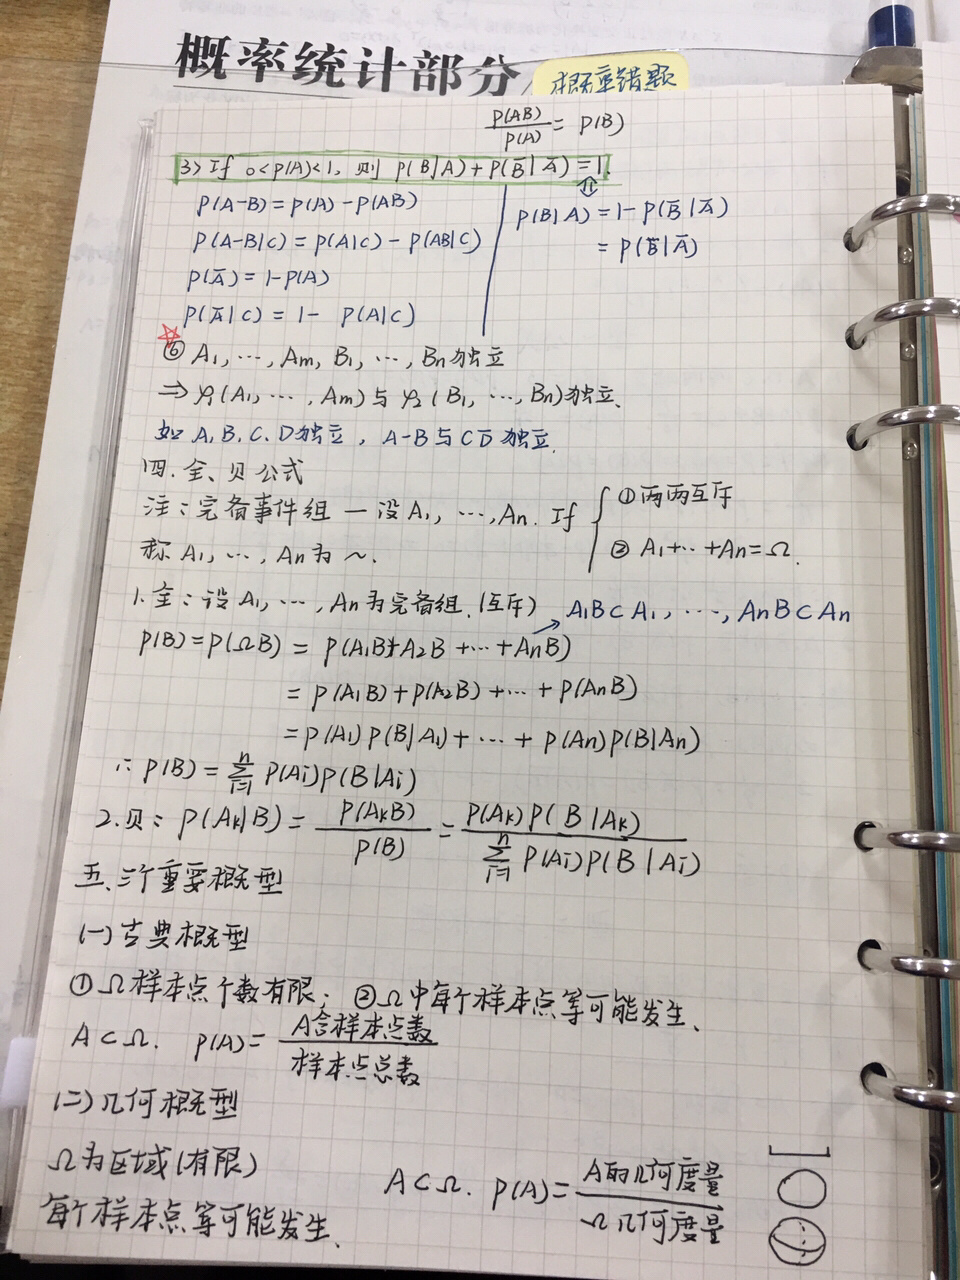 概率统计部分
概率错题
P(AB)/P(A) = P(B)
3> If 0<P(A)<1, 则 P(B|A)+P(B̅|A̅)=1.
⇕
P(A-B)=P(A)-P(AB)
P(A-B|C)=P(A|C)-P(AB|C)
P(A̅)=1-P(A)
P(A̅|C)=1- P(A|C)
P(B|A)=1-P(B̅|A̅)
=P(B|A̅)
☆
⑥ A₁,…,Am, B₁,…,Bn独立
⇒ φ₁(A₁,…,Am)与φ₂(B₁,…,Bn)独立.
如 A,B,C,D独立, A-B与CD̅独立.
四.全、贝公式
注:完备事件组—设A₁,…,An. If { ①两两互斥
②A₁+…+An=Ω.
称A₁,…,An为~.
1.全:设A₁,…,An为完备组.(互斥) A₁B⊂A₁,…,AnB⊂An
P(B)=P(ΩB)=P(A₁B+A₂B+…+AnB)
=P(A₁B)+P(A₂B)+…+P(AnB)
=P(A₁)P(B|A₁)+…+P(An)P(B|An)
∴P(B)=∑ⁿᵢ₌₁ P(Ai)P(B|Ai)
2.贝:P(Ak|B)=P(AkB)/P(B)=P(Ak)P(B|Ak)/∑ⁿᵢ₌₁ P(Ai)P(B|Ai)
五.三个重要概型
(一)古典概型
①Ω样本点个数有限; ②Ω中每个样本点等可能发生.
A⊂Ω. P(A)=A含样本点数/样本点总数
(二)几何概型
Ω为区域(有限)
每个样本点等可能发生.
A⊂Ω. P(A)=A的几何度量/Ω几何度量